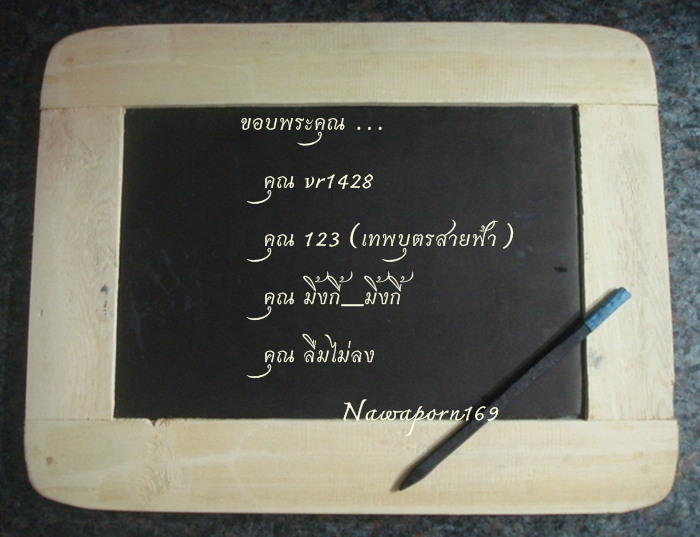 ขอบพระคุณ ...
คุณ vr1428
คุณ 123 (เทพบุตรสายฟ้า)
คุณ มิ้งกี้__มิ้งกี้
คุณ ลืมไม่ลง
Nawaporn169